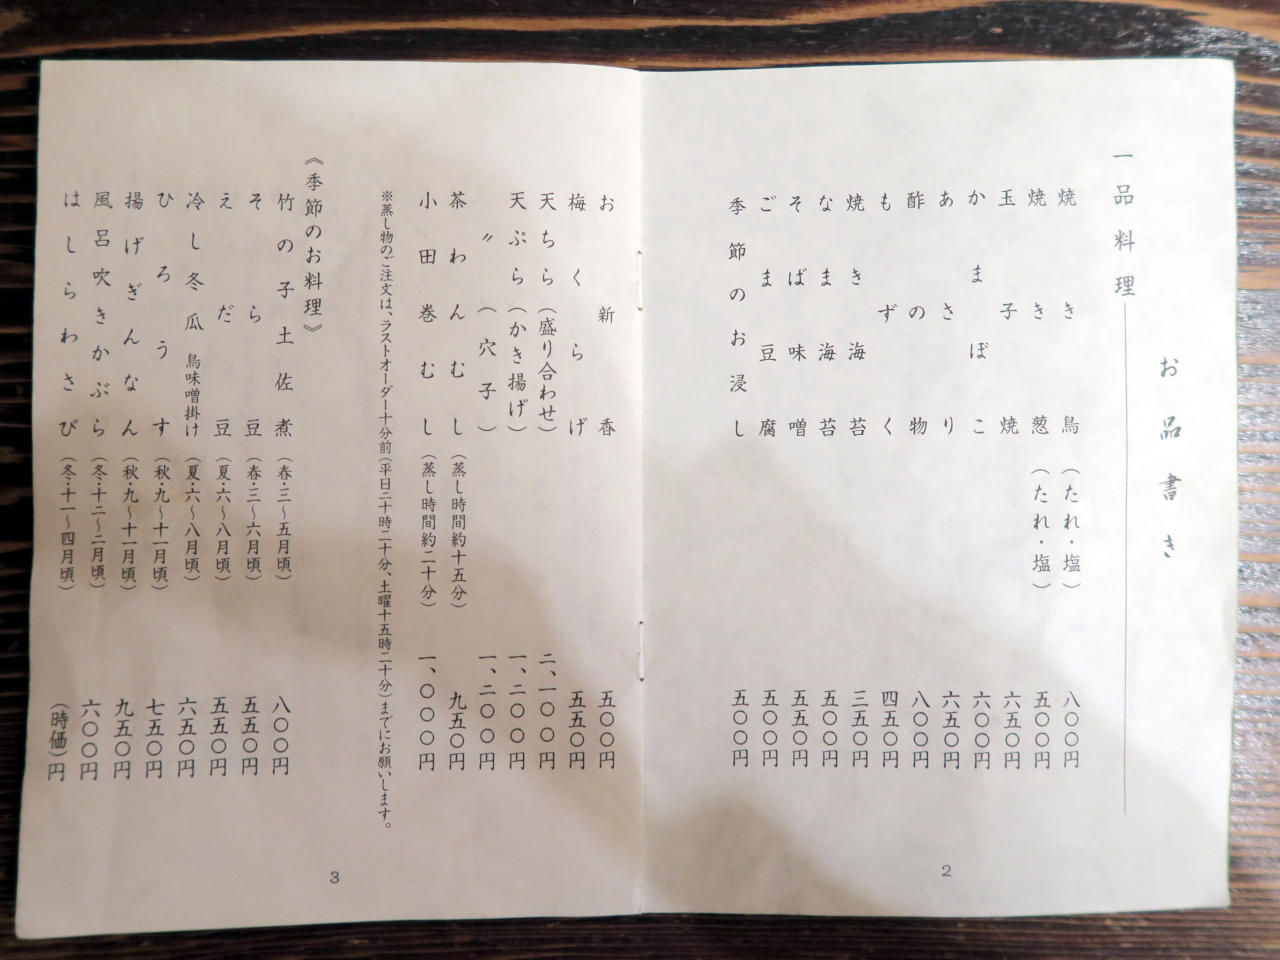 お品書き
一品料理
焼き鳥（たれ・塩）八〇〇円
焼き葱（たれ・塩）五〇〇円
玉子焼 六五〇円
かまぼこ 六〇〇円
あさり 六五〇円
酢の物 八〇〇円
もずく 四五〇円
焼き海苔 三五〇円
なま海苔 五〇〇円
そば味噌 五五〇円
ごま豆腐 五〇〇円
季節のお浸し 五〇〇円
2
お新香 五〇〇円
梅くらげ 五五〇円
天ちら（盛り合わせ）二、一〇〇円
天ぷら（かき揚げ）一、二〇〇円
〃（穴子）一、二〇〇円
茶わんむし（蒸し時間約十五分）九五〇円
小田巻むし（蒸し時間約二十分）一、〇〇〇円
※蒸し物のご注文は、ラストオーダー十分前（平日二十時二十分、土曜十五時二十分）までにお願いします。
《季節のお料理》
竹の子土佐煮（春・三〜五月頃）八〇〇円
そら豆（春・三〜六月頃）五五〇円
えだ豆（夏・六〜八月頃）五五〇円
冷し冬瓜 鳥味噌掛け（夏・六〜八月頃）六五〇円
ひろうす（秋・九〜十一月頃）七五〇円
揚げぎんなん（秋・九〜十一月頃）九五〇円
風呂吹きかぶら（冬・十二〜二月頃）六〇〇円
はしらわさび（冬・十一〜四月頃）（時価）円
3